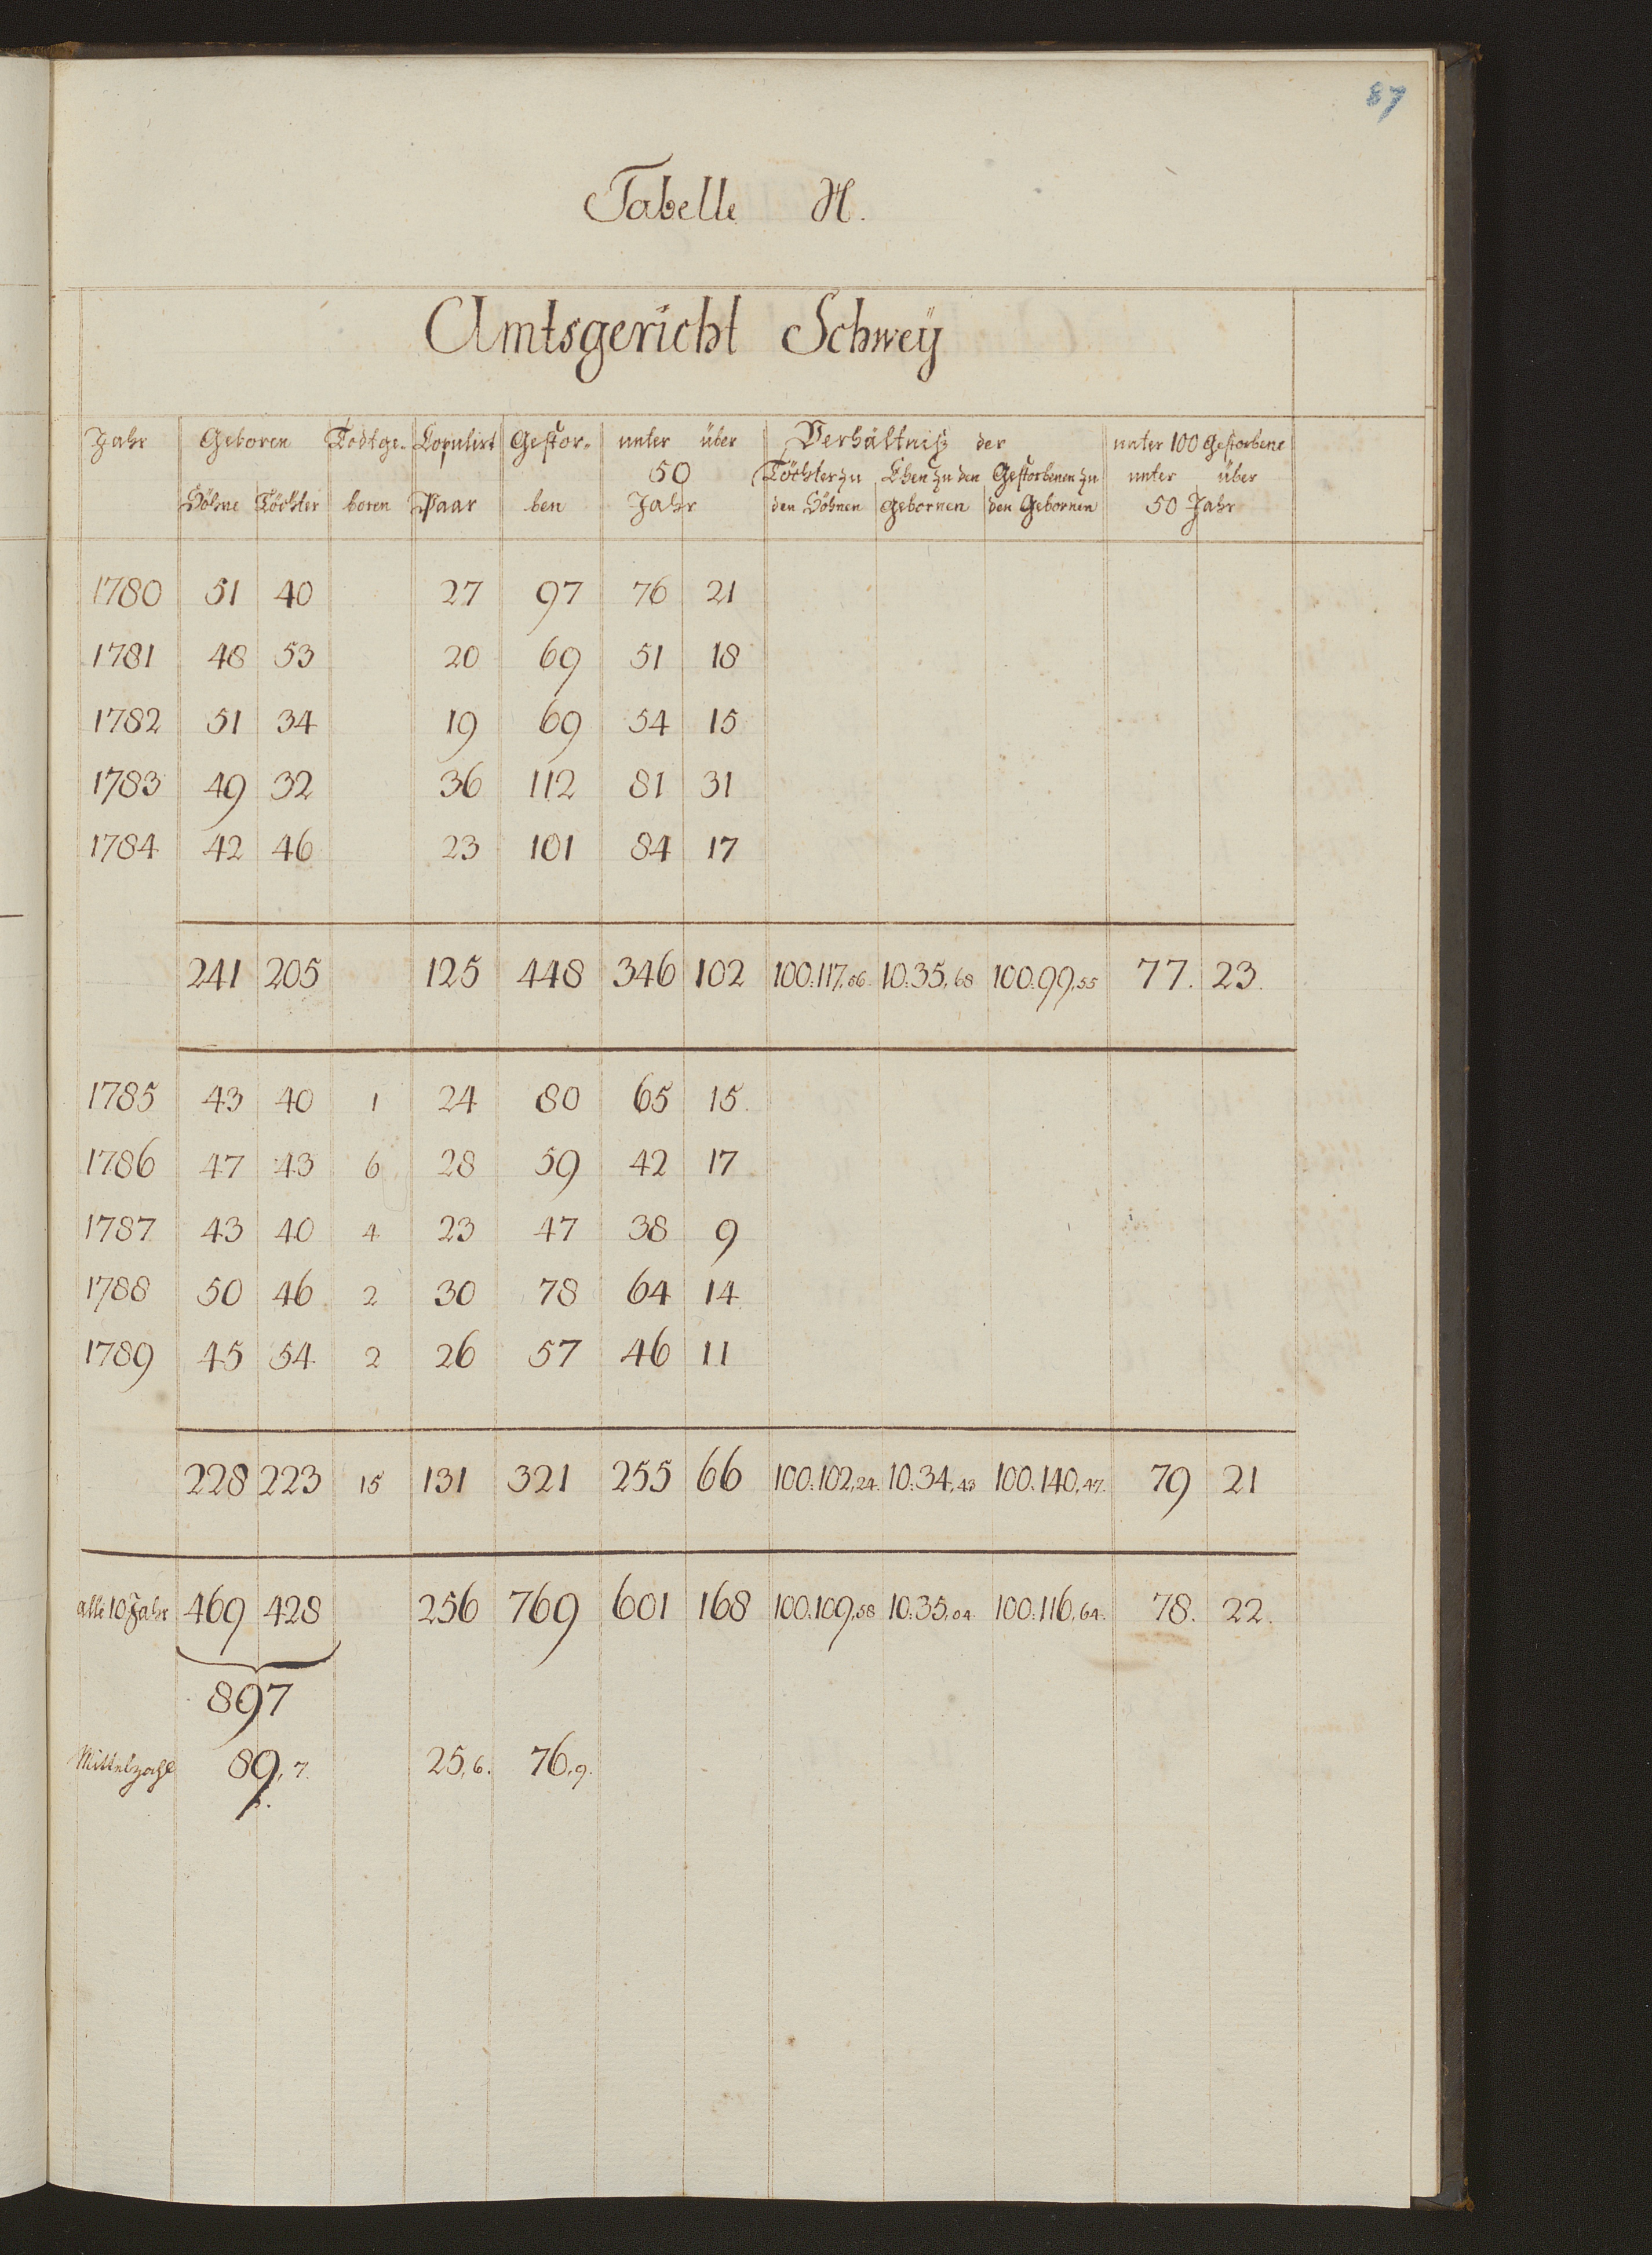 87
Tabelle H.
Amtsgericht Schweÿ
Jahr Geboren Todtge- Copulirt Gestor- unter über Verhältniß der unter 100 Gestorbene
50 Töchter zu Ehen zu den Gestorbenen zu unter über
Söhne Töchter boren Paar ben Jahr den Söhnen gebornen den Gebornen 50 Jahr
1780 51 40 27 97 76 21
1781 48 53 20 69 51 18
1782 51 34 19 69 54 15
1783 49 32 36 112 81 31
1784 42 46 23 101 84 17
241 205 125 448 346 102 100:117,56. 10:35,68 100:99,55 77. 23.
1785 43 40 1 24 80 65 15.
1786 47 43 6 28 59 42 17
1787 43 40 4 23 47 38 9
1788 50 46 2 30 78 64 14
1789 45 54 2 26 57 46 11
228 223 15 131 321 255 66 100:102,24. 10:34,43 100:140,47. 79 21
alle 10 Jahr 469 428 256 769 601 168 100:109,58 10:35,04. 100:116,64. 78. 22.
897
Mittelzahl 89,7. 25,6. 76,9.